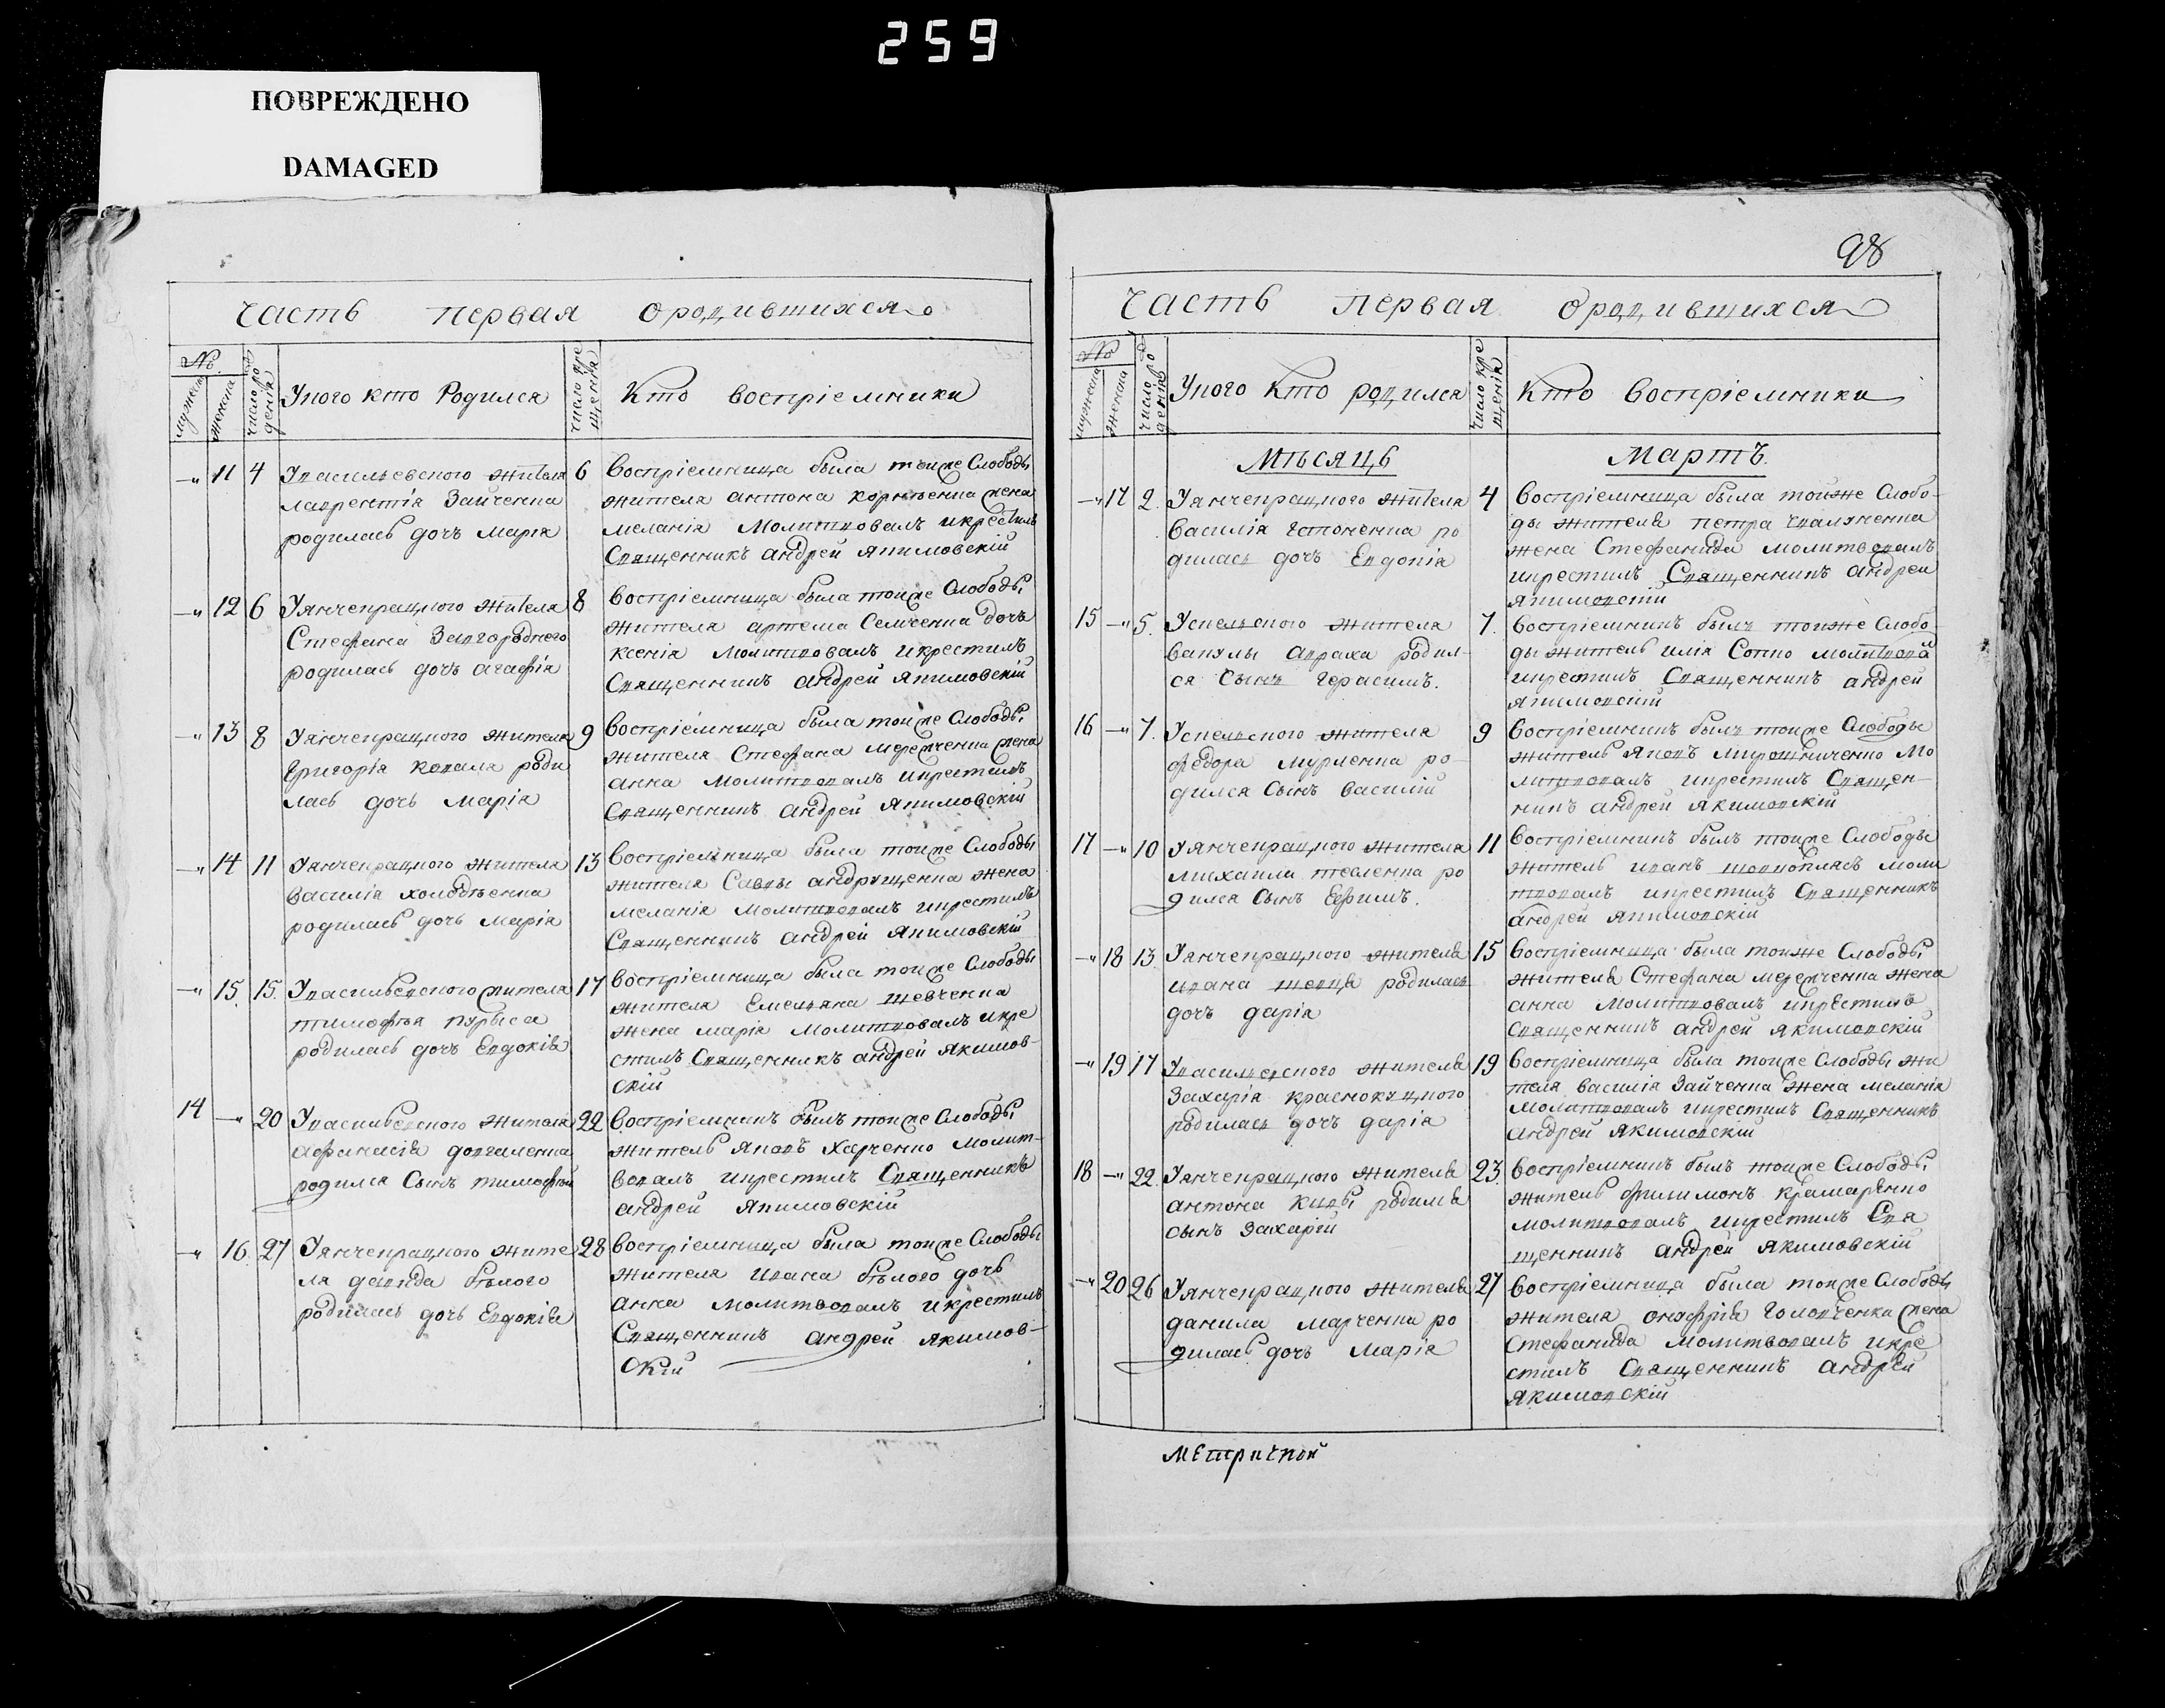 259
ПОВРЕЖДЕНО
DAMAGED
98
Часть первая ородившихся
№
мужеска
женска
число рождения
Укого кто Родился
число крещения
Кто воспріемники
11 4 Увасильевского жителя
лаврентія Зайченка
родилась дочь марія
6 Воспріемница была тоиже Слободы
жителя антона корнѣенка жена
меланія Молитвовалъ икрестилъ
Священникъ андрей якимовскій
12 6 Уянченрацкого жителя
Стефана Завгороднего
родилась дочь агафія
8 Воспріемница была тоиже Слободы
жителя артема Семченка дочь
ксенія молитвовалъ икрестилъ
Священникъ андрей якимовскій
13 8 Уянченрацкого жителя
Григорія коваля роди
лась дочь марія
9 Воспріемница была тоиже Слободы
жителя Стефана жена
анна Молитвовалъ икрестилъ
Священникъ андрей якимовскій
14 11 Уянченрацкого жителя
василія холодѣенка
родилась дочь марія
13 Воспріемница была тоиже Слободы
жителя Савы андрущенка жена
меланія молитвовалъ икрестилъ
Священникъ андрей якимовскій
15. 15. Увасильевского жителя
тимофѣя
родилась дочь Евдокія
17 Воспріемница была тоиже Слободы
жителя Емельяна шевченка
жена марія молитвовалъ икре
стилъ Священникъ андрей якимов-
скій
14 20 Увасильевского жителя
афанасія довгаленка
родился Сынъ тимофѣй
22 Воспріемникъ былъ тоиже Слободы
житель яковъ Харченко молит-
вовалъ икрестилъ Священникъ
андрей якимовскій
16. 27 Уянченрацкого жите
ля давида бѣлого
родилась дочь Евдокія
28 Воспріемница была тоиже Слободы
жителя ивана бѣлого дочь
анна молитвовалъ икрестилъ
Священникъ андрей якимов-
скій
Часть первая ородившихся
№
мужеска
женска
число рождения
Укого Кто родился
число крещенія
Кто воспріемники
Мѣсяць Мартъ.
17 2. Уянченрацкого жителя
василія ро
дилась дочь Евдокія
4 Воспріемница была тойже Слобо-
ды жителя петра
жена Стефанида молитвовалъ
икрестилъ Священникъ андрей
якимовскій
15 5. жителя
вакулы родил-
ся Сынъ Герасимъ.
7. Воспріемникъ былъ тоиже Слобо
ды житель илія Сопко молитвова
икрестилъ Священникъ андрей
якимовскій
16 7. жителя
федора мурленка ро-
дился Сынъ василій
9 Воспріемникъ былъ тоиже Слободы
житель яковъ мирошниченко мо
литвовалъ икрестилъ Священ-
никъ андрей якимовскій
17 10 Уянченрацкого жителя
михаила ро
дился Сынъ Ефимъ.
11 Воспріемникъ былъ тоиже Слободы
житель иванъ моли
твовалъ икрестилъ Священникъ
андрей якимовскій
18 13 Уянченрацкого жителя
ивана шевця родилась
дочь дарія
15 Воспріемница была тоиже Слободы
жителя Стефана жена
анна молитвовалъ икрестилъ
Священникъ андрей якимовскій
19 17 Увасильевского жителя
Захарія краснокуцкого
родилась дочь дарія
19 Воспріемница была тоиже Слободы жи
теля василія Зайченка Жена меланія
молитвовалъ икрестилъ Священникъ
андрей якимовскій
18 22. Уянченрацкого жителя
антона родился
сынъ Захарій
23. Воспріемникъ былъ тоиже Слободы
житель филимонъ крамаренко
молитвовалъ икрестилъ Свя
щенникъ андрей якимовскій
20 26 Уянченрацкого жителя
данила марченка ро
дилась дочь Марія
27 Воспріемница была тоиже Слободы
жителя онофрія Головченка жена
Стефанида молитвовалъ икре
стилъ Священникъ андрей
якимовскій
метричной